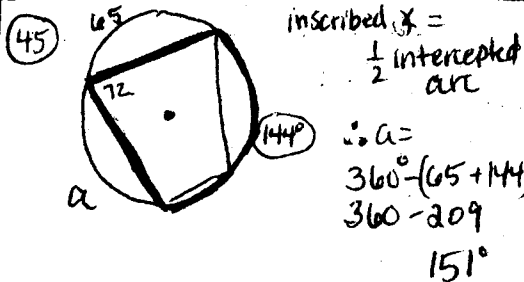 45
65
72
144°
a
inscribed ∡ =
1/2 intercepted
arc
∴ a=
360°-(65+144)
360-209
151°